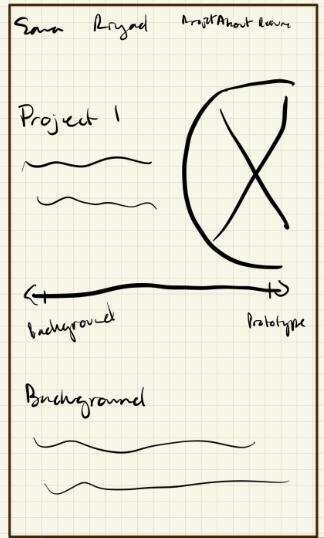 Sana Riyad Projet About Resume
Project 1
Background Prototype
Background